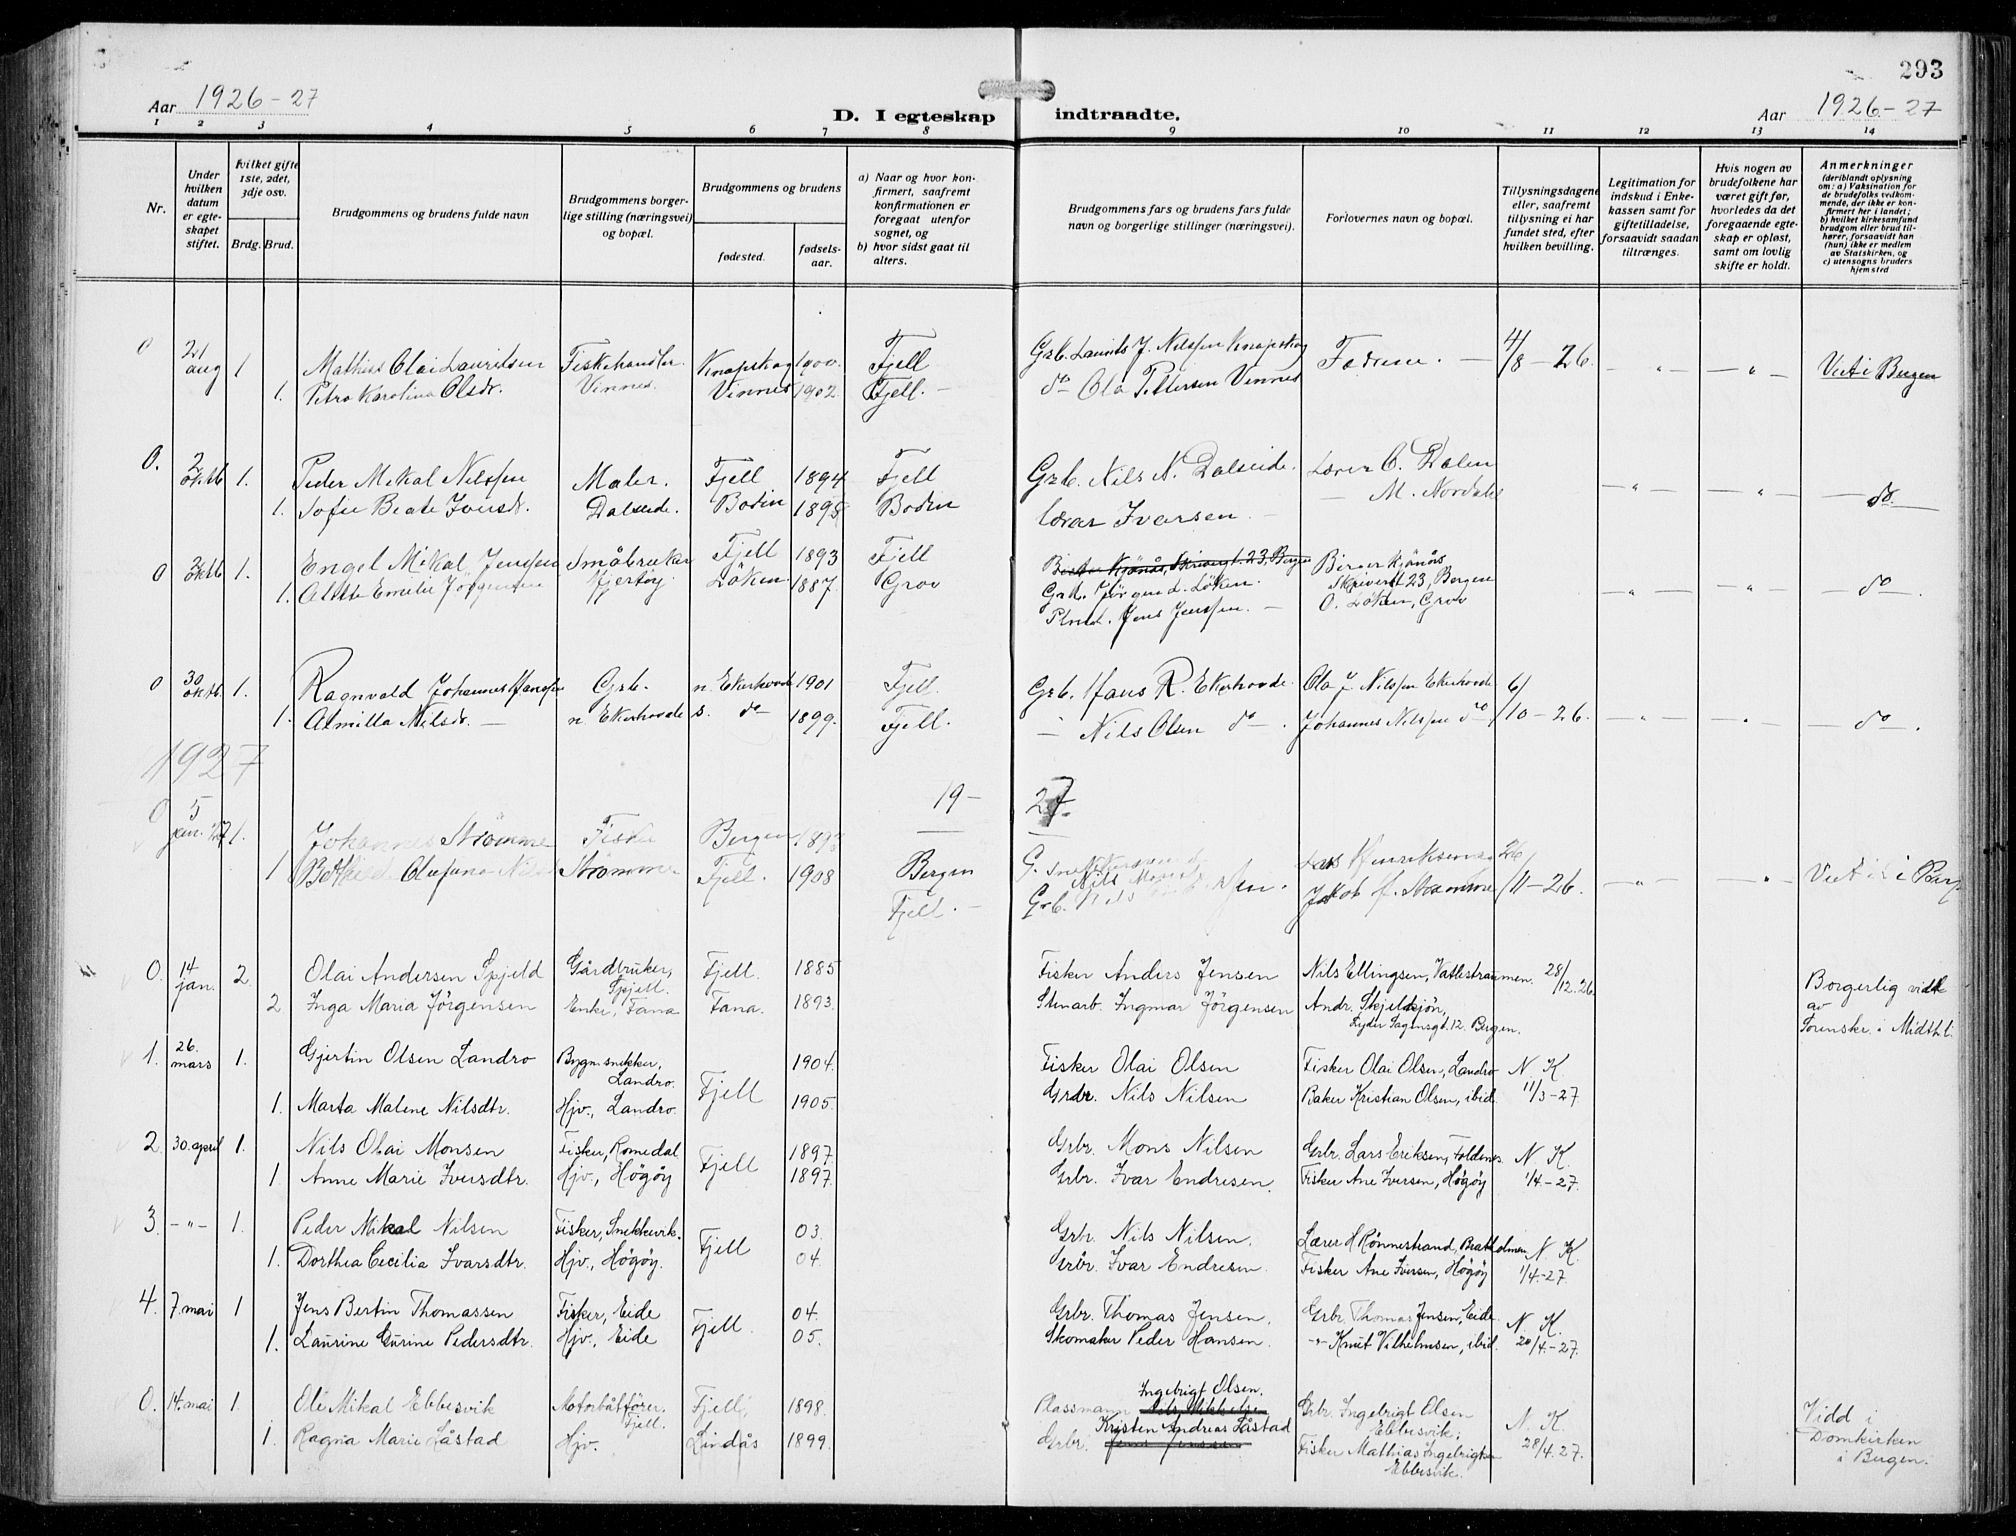 293
Aar 1926-27
D. I egteskap indtraadte.
Aar 1926-27
1 2 3 4 5 6 7 8 9 10 11 12 13 14
Nr.
Under hvilken datum er egteskapet stiftet.
Hvilket gifte 1ste, 2det, 3dje osv.
Brdg. Brud.
Brudgommens og brudens fulde navn
Brudgommens borgerlige stilling (næringsvei) og bopæl.
Brudgommens og brudens
fødested.
fødsels-aar.
a) Naar og hvor konfirmert, saafremt konfirmationen er foregaat utenfor sognet, og
b) hvor sidst gaat til alters.
Brudgommens fars og brudens fars fulde navn og borgerlige stillinger (næringsvei).
Forlovernes navn og bopæl.
Tillysningsdagene eller, saafremt tillysning ei har fundet sted, efter hvilken bevilling.
Legitimation for indskud i Enkekassen samt for giftetilladelse, forsaavidt saadan tiltrænges.
Hvis nogen av brudefolkene har været gift før, hvorledes da det foregaaende egteskap er opløst, samt om lovlig skifte er holdt.
Anmerkninger
(deriblandt oplysning om: a) Vaksination for de brudefolks vedkommende, der ikke er konfirmert her i landet; b) hvilket kirkesamfund brudgom eller brud tilhører, forsaavidt han (hun) ikke er medlem av Statskirken, og c) utensogns bruders hjemsted
0 21 aug 1 Mathias Olai Lauritsen Fiskehandler Knapskog 1900 Fjell Grb. Laurits J. Nilssen Knapskog Fædrene. 4/8-26. — " — — " — Viet i Bergen
1. Petra Karolina Olsdr. Vinnes. Vinnes 1902 Fjell. do Ola Pettersen Vinnes
0. 2 oktb 1. Peder Mikal Nilssen Maler. Fjell 1894 Fjell Grb. Nils N. Dalseide. Lærer O. Dalen — " — — " — do
1. Sofie Beate Iversdr. Dalseide. Bodin 1895 Bodin Lærer Ivarsen M. Nordahl
0 2 oktb 1. Engel Mikal Jenssen Småbruker Fjell 1893 Fjell Birger Kjönås, Skriverst. 23, Bergen Birger Kjönås
1. Emilie Jörgensen Løken. 1887. Grov Grb. Jörgen L. Löken. Skriverst 23, Bergen — " — — " — do.
Jens Jenssen. O. Löken, Grov
0 30 oktb. 1. Ragnvald Johannes Hanssen Grb. n. Ekerhovde 1901 Fjell. Grb. Hans R. Ekerhovde. Ola J. Nilssen Ekerhovde 6/10-26.
1. Almilla Nilsdr. n. Ekerhovde s. do 1899. Fjell. Nils Olsen do. Johannes Nilssen do — " — — " — do.
1927
19- 27
0 5 jan. 1. Johannes Strömme Fisker Bergen Bergen Lars Henriksen 26/11-26. Viet i Berg
1 Olufina Nils Strömme Fjell. 1908 Fjell. Grb. Nils Jakob H. Strömme — " — "
0. 14 jan. 2. Olai Andersen Spjeld Gårdbruker, Spjell. Fjell. 1885 Fisker Anders Jensen Nils Ellingsen, Vatlestraumen. 28/12.26. Borgerlig vidd
2 Inga Maria Jörgensen Enke, Fana Fana. 1893. Stenarb. Ingmar Jörgensen Andr. Skjeldsjön, av
Lyder Sagensgt. 12. Bergen. Sorenskr. i Midthl.
1. 26. mars 1. Gjertin Olsen Landro Bygn.snekker, Landro. Fjell 1904. Fisker Olai Olsen Fisker Olai Olsen, Landro N. K.
1. Marta Malene Nilsdtr. Hjv., Landro. 1905. Grdr. Nils Nilsen Baker Kristian Olsen, ibid. 11/3-27
2. 30. april 1. Nils Olai Monsen Fisker, Romedal Fjell 1897 Grbr. Mons Nilsen Grbr. Lars Eriksen, Foldenes. N. K.
1. Anne Marie Iversdtr. Hjv., Högöy 1897. Grbr. Ivar Endresen. Fisker Ane Iversen, Högöy 1/4-27.
3. — " — 1. Peder Mikal Nilsen Fisker, Snekkevik. Fjell 03. Grbr. Nils Nilsen. Lærer H Rönnestrand, Brattholmen N. K.
1. Dorthea Cecilia Ivarsdtr. Hjv., Högöy. 04. Grbr. Ivar Endresen. Fisker Ane Iversen, Högöy 1/4-27.
4. 7. mai 1 Jens Bertin Thomassen Fisker, Eide Fjell 04. Grbr. Thomas Jensen. Grbr. Thomas Jensen, Eide. N. K.
1. Laurine Gurine Pedersdtr. Hjv., Eide 05. Skomaker Peder Hansen. -"- Knut Vilhelmsen, ibid. 20/4.-27.
0. 14. mai 1. Ole Mikal Ebbesvik Motorbåtförer. Fjell. Fjell, 1898. Plassmann Ingebrigt Olsen. Nils Mikkelsen Grbr. Ingebrigt Olsen Ebbesvik; N. K. Vidd i
1. Ragna Marie Låstad Hjv. Lindås 1899. Grbr. Kristen Andreas Låstad Jens Jensen Fisker Mathias Ingebrigtsen Ebbesvik. 28/4.27. Domkirken
i Bergen.